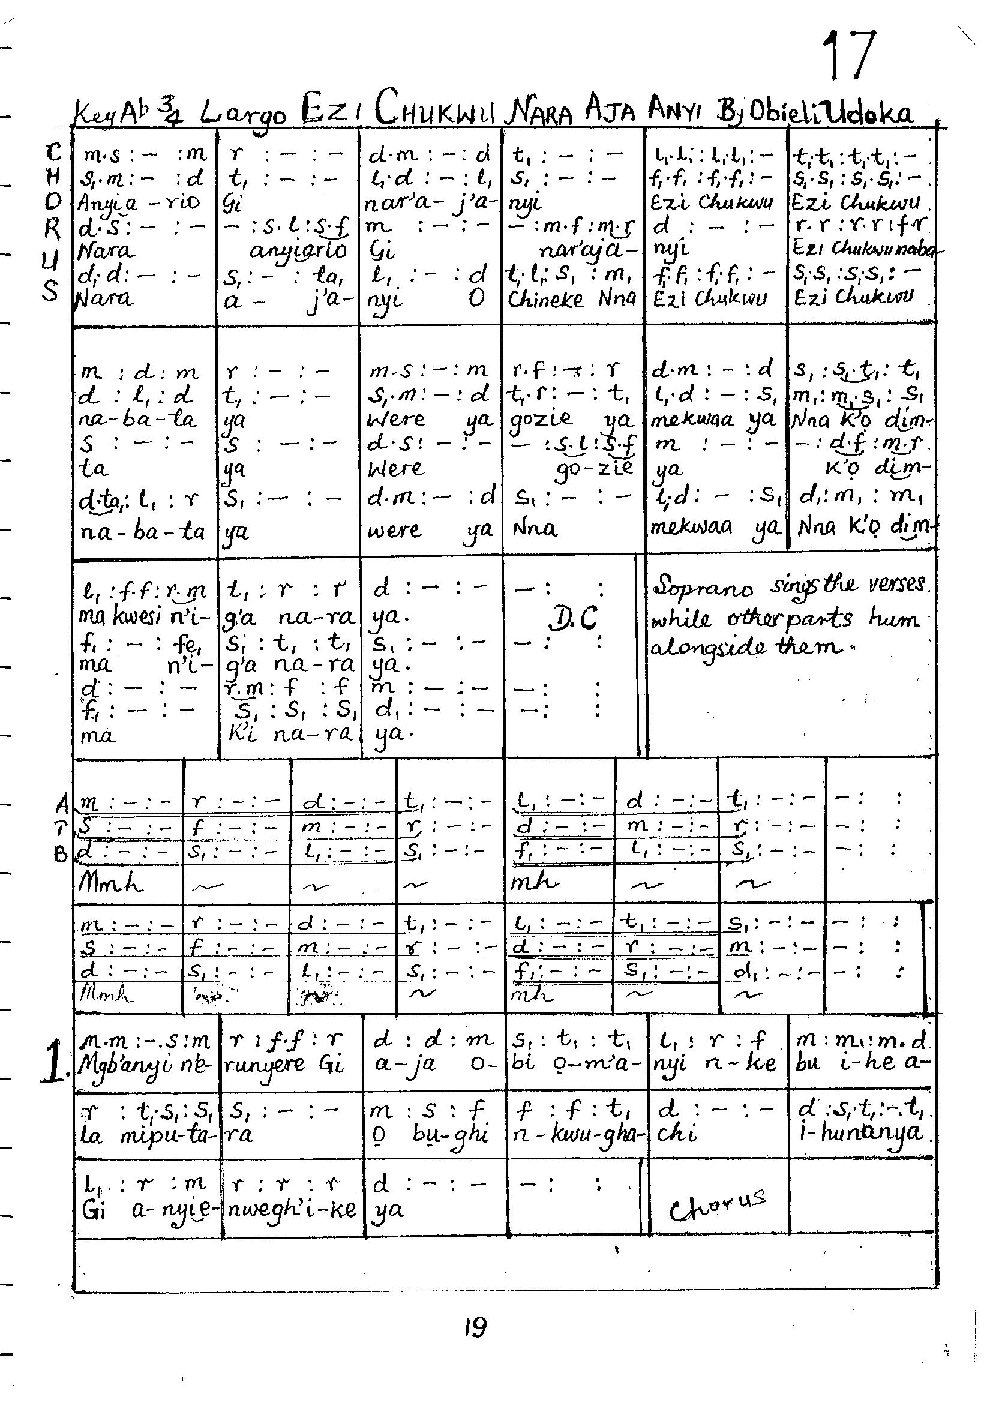 17
Key Ab 3/4 Largo EZI CHUKWU NARA AJA ANYI By Obieli Udoka
CHORUS
m.s : – : m | r : – : – | d.m : – : d | t₁ : – : – | l₁.l₁ : l₁.l₁ : – | t₁.t₁ : t₁.t₁ : –
s₁.m : – : d | t₁ : – : – | l₁.d : – : l₁ | s₁ : – : – | f₁.f₁ : f₁.f₁ : – | s₁.s₁ : s₁.s₁ : –
Anyi a-rio | Gi | nar'a- j'a- | nyi | Ezi Chukwu | Ezi Chukwu
d.s : – : – | – : s.l : s.f | m : – : – | – : m.f : m.r | d : – : – | r.r : r.r : f.r
Nara | anyiario | Gi | nar'aja- | nyi | Ezi Chukwu naba-
d₁.d₁ : – : – | s₁ : – : ta₁ | l₁ : – : d | t₁.l₁ : s₁ : m₁ | f₁.f₁ : f₁.f₁ : – | s₁.s₁ : s₁.s₁ : –
Nara | a - j'a- | nyi O | Chineke Nna | Ezi Chukwu | Ezi Chukwu
m : d : m | r : – : – | m.s : – : m | r.f : – : r | d.m : – : d | s₁ : s₁.t₁ : t₁
d : l₁ : d | t₁ : – : – | s₁.m : – : d | t₁.r : – : t₁ | l₁.d : – : s₁ | m₁ : m₁.s₁ : s₁
na-ba-ta | ya | Were ya | gozie ya | mekwaa ya | Nna K'o dim-
s : – : – | s : – : – | d.s : – : – | – : s.l : s.f | m : – : – | – : d.f : m.r
ta | ya | Were | go-zie | ya | K'ọ dim-
d.ta₁ : l₁ : r | s₁ : – : – | d.m : – : d | s₁ : – : – | l₁.d : – : s₁ | d₁ : m₁ : m₁
na-ba-ta | ya | were ya | Nna | mekwaa ya | Nna K'ọ dim-
l₁ : f.f : r.m | t₁ : r : r | d : – : – | – : : | Soprano sings the verses
ma kwesi n'i- | g'a na-ra | ya. | D.C | while other parts hum
f₁ : – : fe₁ | s₁ : t₁ : t₁ | s₁ : – : – | – : : | alongside them.
ma n'i- | g'a na-ra | ya.
d : – : – | r.m : f : f | m : – : – | – : :
f₁ : – : – | s₁ : s₁ : s₁ | d₁ : – : – | – : :
ma | K'i na-ra | ya.
A m : – : – | r : – : – | d : – : – | t₁ : – : – | l₁ : – : – | d : – : – | t₁ : – : – | – : :
T s : – : – | f : – : – | m : – : – | r : – : – | d : – : – | m : – : – | r : – : – | – : :
B d : – : – | s₁ : – : – | l₁ : – : – | s₁ : – : – | f₁ : – : – | l₁ : – : – | s₁ : – : – | – : :
Mmh | ~ | ~ | ~ | mh | ~ | ~
m : – : – | r : – : – | d : – : – | t₁ : – : – | l₁ : – : – | t₁ : – : – | s₁ : – : – | – : :
s : – : – | f : – : – | m : – : – | r : – : – | d : – : – | r : – : – | m : – : – | – : :
d : – : – | s₁ : – : – | l₁ : – : – | s₁ : – : – | f₁ : – : – | s₁ : – : – | d₁ : – : – | – : :
Mmh | ~ | mh | ~ | ~
1. m.m : –.s : m | r : f.f : r | d : d : m | s₁ : t₁ : t₁ | l₁ : r : f | m : m : m.d
Mgb'anyi n'e- | runyere Gi | a-ja o- | bi ọ-m'a- | nyi n-ke | bu i-he a-
r : t₁.s₁ : s₁ | s₁ : – : – | m : s : f | f : f : t₁ | d : – : – | d : s₁.t₁ : –.t₁
la mipu-ta- | ra | O bu-ghi | n-kwu-gha- | chi | i-hunanya
l₁ : r : m | r : r : r | d : – : – | – : : | Chorus
Gi a-nyie- | nwegh'i-ke | ya
19